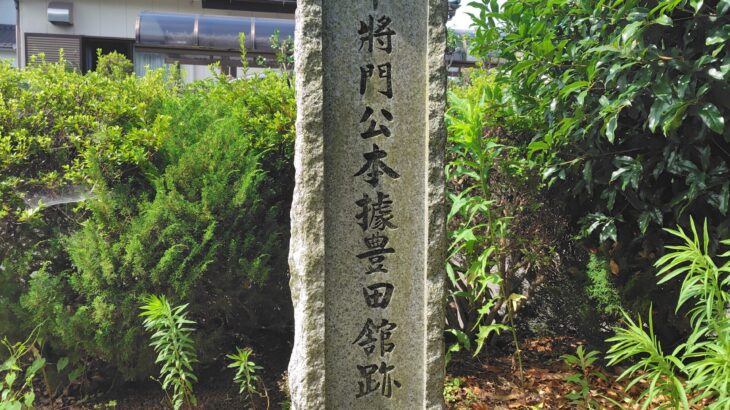 將門公本據豊田舘跡